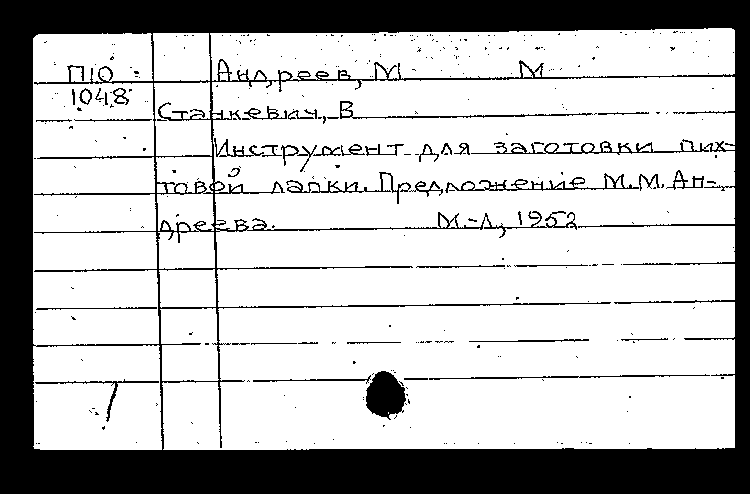 П10 Андреев, М. М
1048
Станкевич, В
Инструмент для заготовки пих-
товой лапки. Предложение М.М. Ан-
дреева. М.-Л., 1952